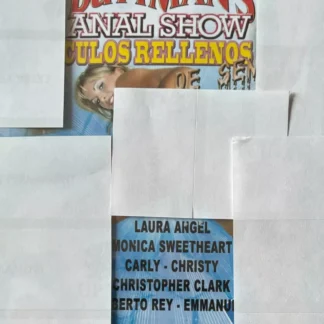 ANAL SHOW
CULOS RELLENOS
DE SE
LAURA ANGEL
MONICA SWEETHEART
CARLY - CHRISTY
CHRISTOPHER CLARK
BERTO REY - EMMANU